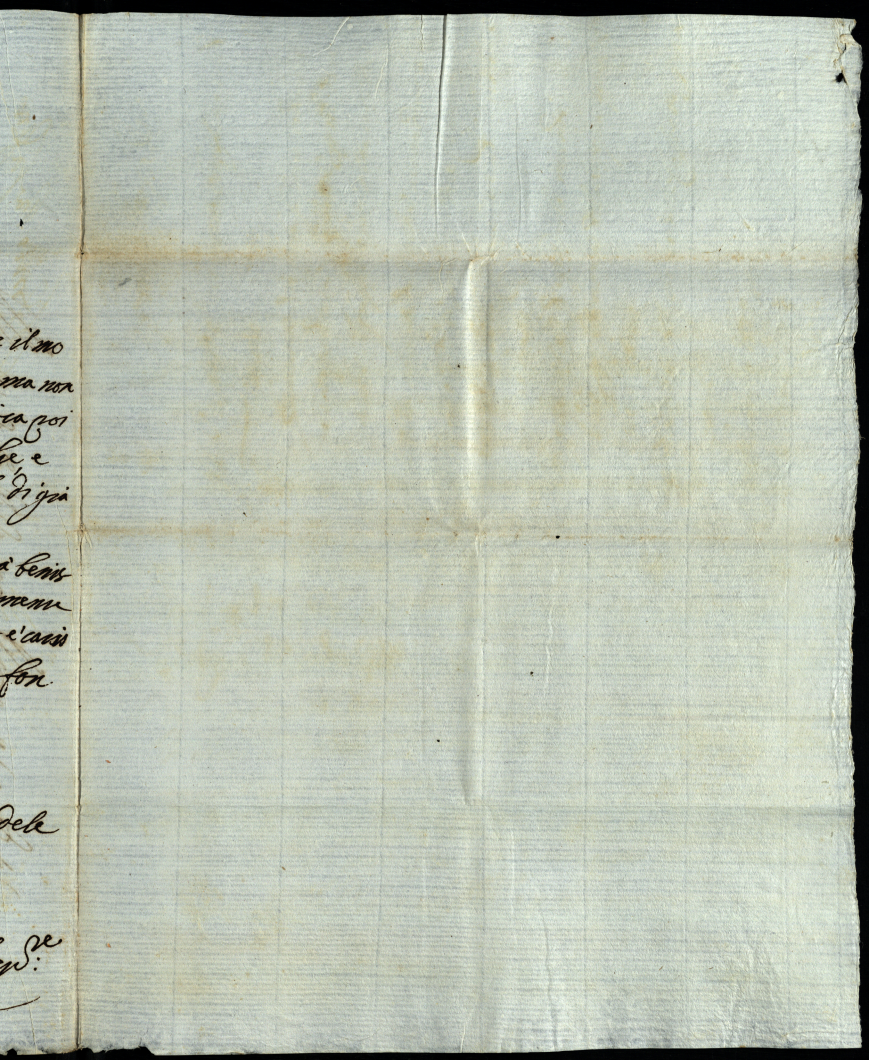 il mo
ma non
ica poi
he e
di già
à benis
mente
è caris
fon
dele